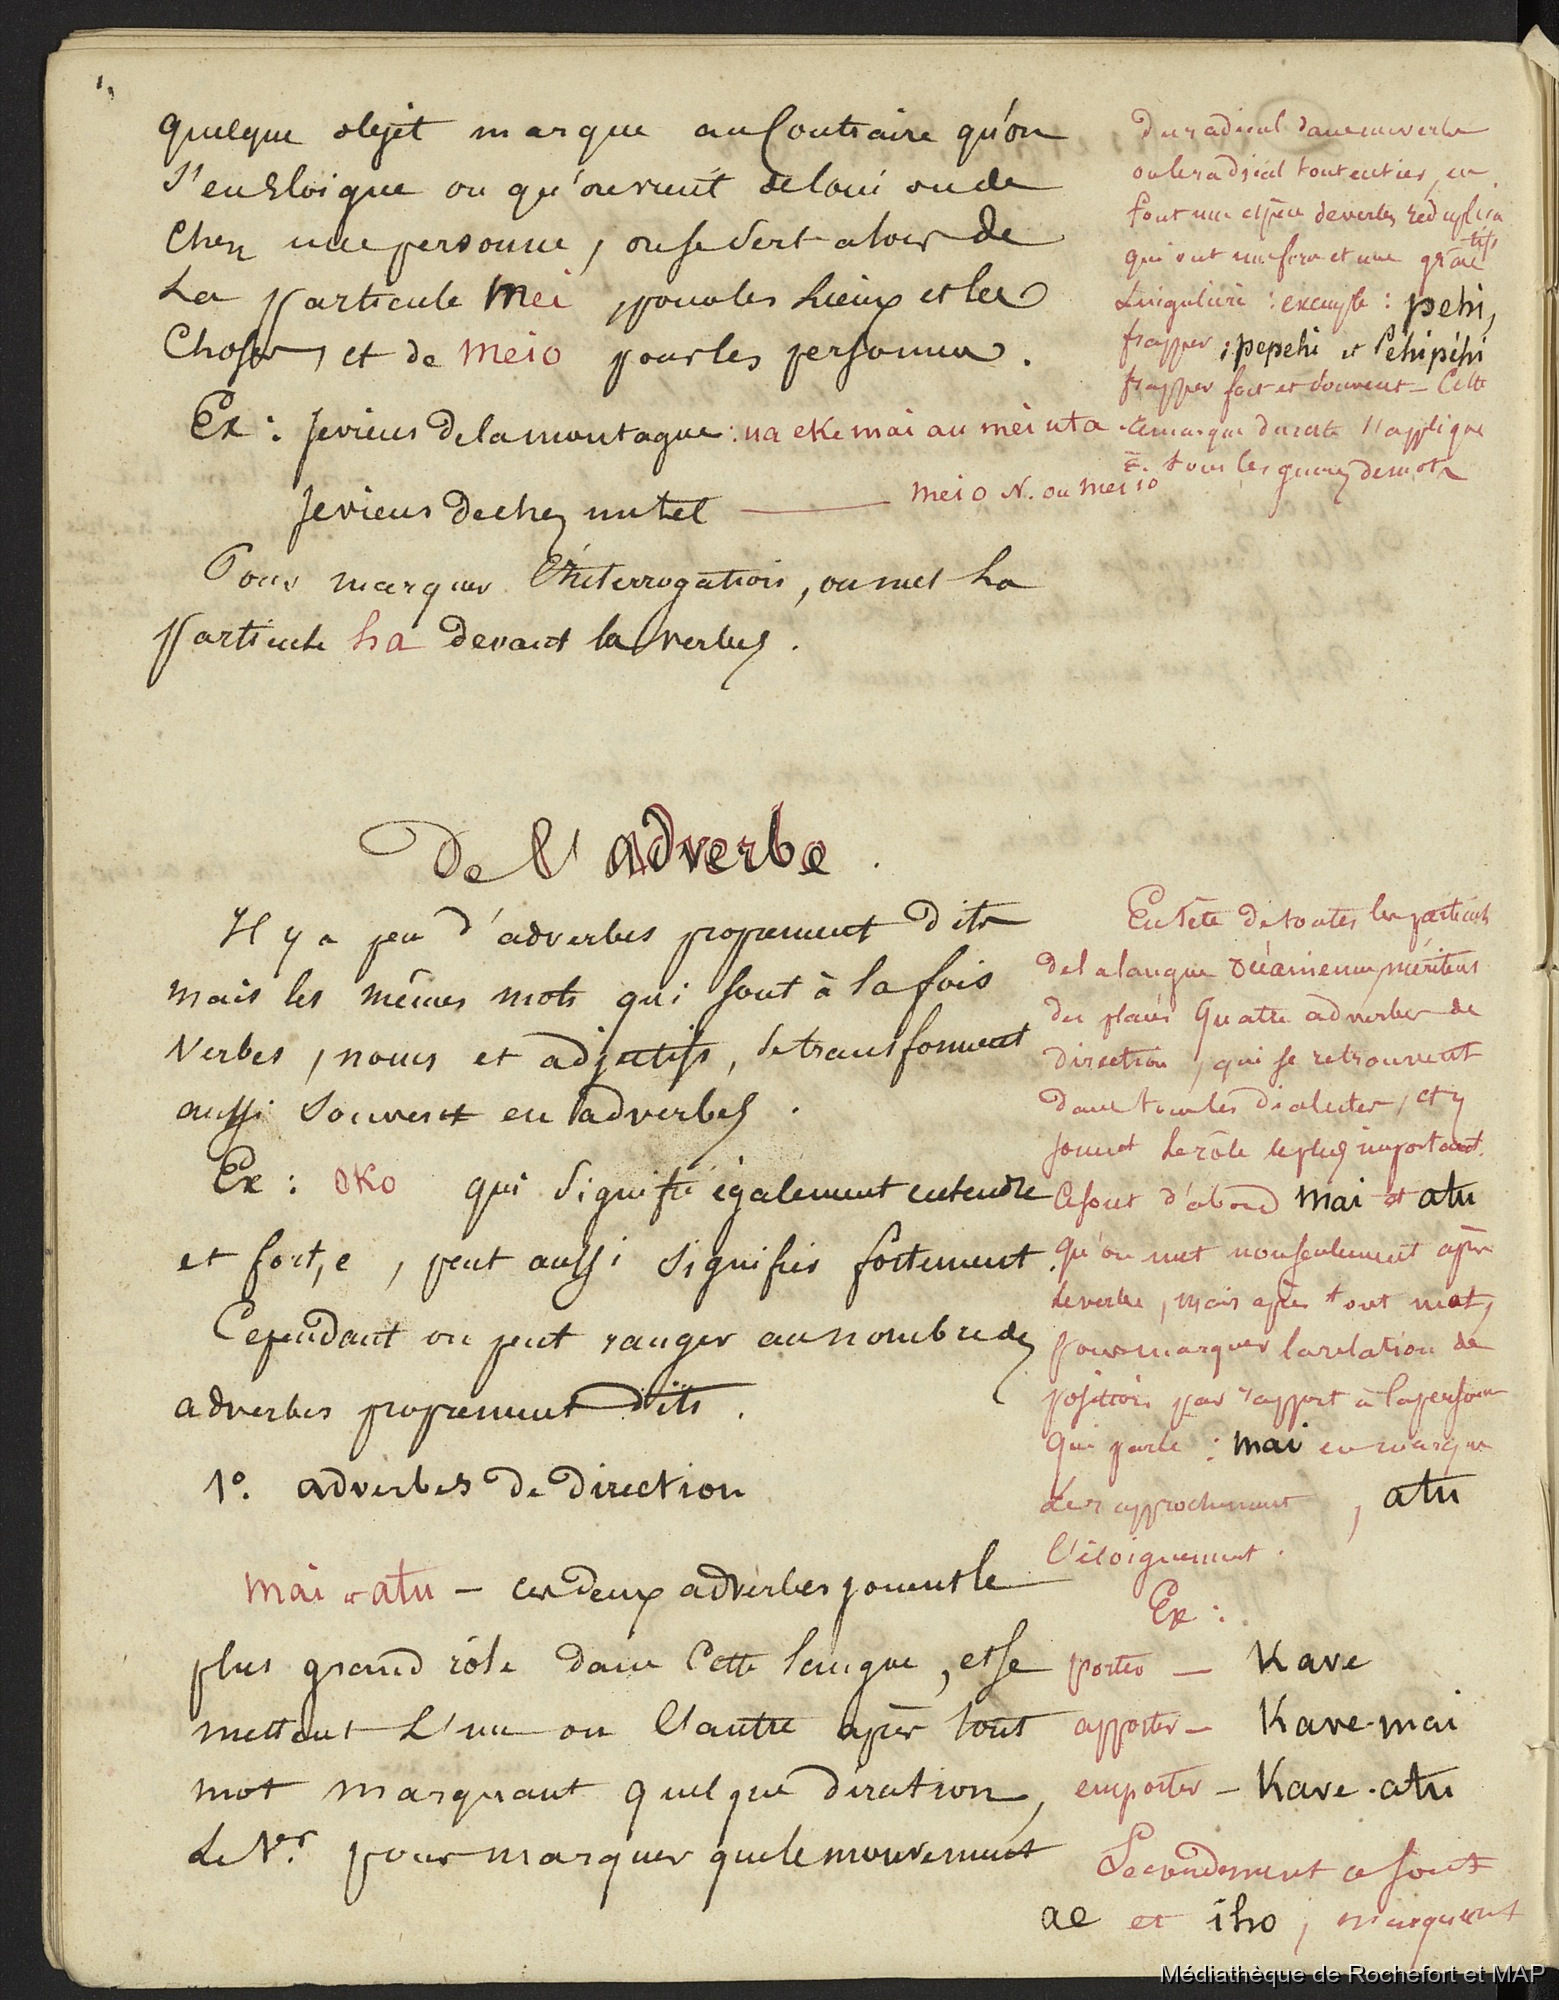 quelque objet marque au Contraire qu'on
s'en Eloigne ou qu'on vient de loin ou de
chez une personne, on se sert alors de
La particule mei, pour les Lieux et les
Choses, et de meio pour les personnes.
Ex: Je viens de la montagne: ua eke mai au mei uta
Je viens de chez un tel — meio N. ou meiio
Pour marquer l'interrogation, on met La
particule ha devant les verbes.
De l'adverbe.
Il y a peu d'adverbes proprement dits
mais les mêmes mots qui sont à la fois
Verbes, noms et adjectifs, se transforment
aussi souvent en adverbes.
Ex: oko qui signifie également entendre
et fort, e, peut aussi signifier fortement.
Cependant on peut ranger au nombre des
adverbes proprement dits.
1º. adverbes de direction
mai et atu — ces deux adverbes jouent le
plus grand rôle dans Cette langue, et se
mettent L'un ou l'autre après tout
mot marquant quelque direction,
Le 1er. pour marquer que le mouvement
Du radical dans un verbe
ou le radical tout entier, en
font une espèce de verbes réduplica
tifs
qui ont une force et une grâce
singulière: exemple: pehi,
frapper; pepehi et péhipéhi
frapper fort et souvent — Cette
remarque du reste s'applique
à tous les genres de mots
En tête de toutes les particules
de la langue océanienne, méritent
d'être placés Quatre adverbes de
direction, qui se retrouvent
dans tous les dialectes, et y
jouent Le rôle le plus important.
Ce sont d'abord mai et atu
qu'on met non seulement après
Le verbe, mais après tout mot,
pour marquer la relation de
position par rapport à la personne
qui parle: mai en marque
Le rapprochement, atu
l'éloignement.
Ex:
porter — Kave
apporter — Kave-mai
emporter — Kave-atu
Secondement ce sont
ae et iho, marquent
Médiathèque de Rochefort et MAP